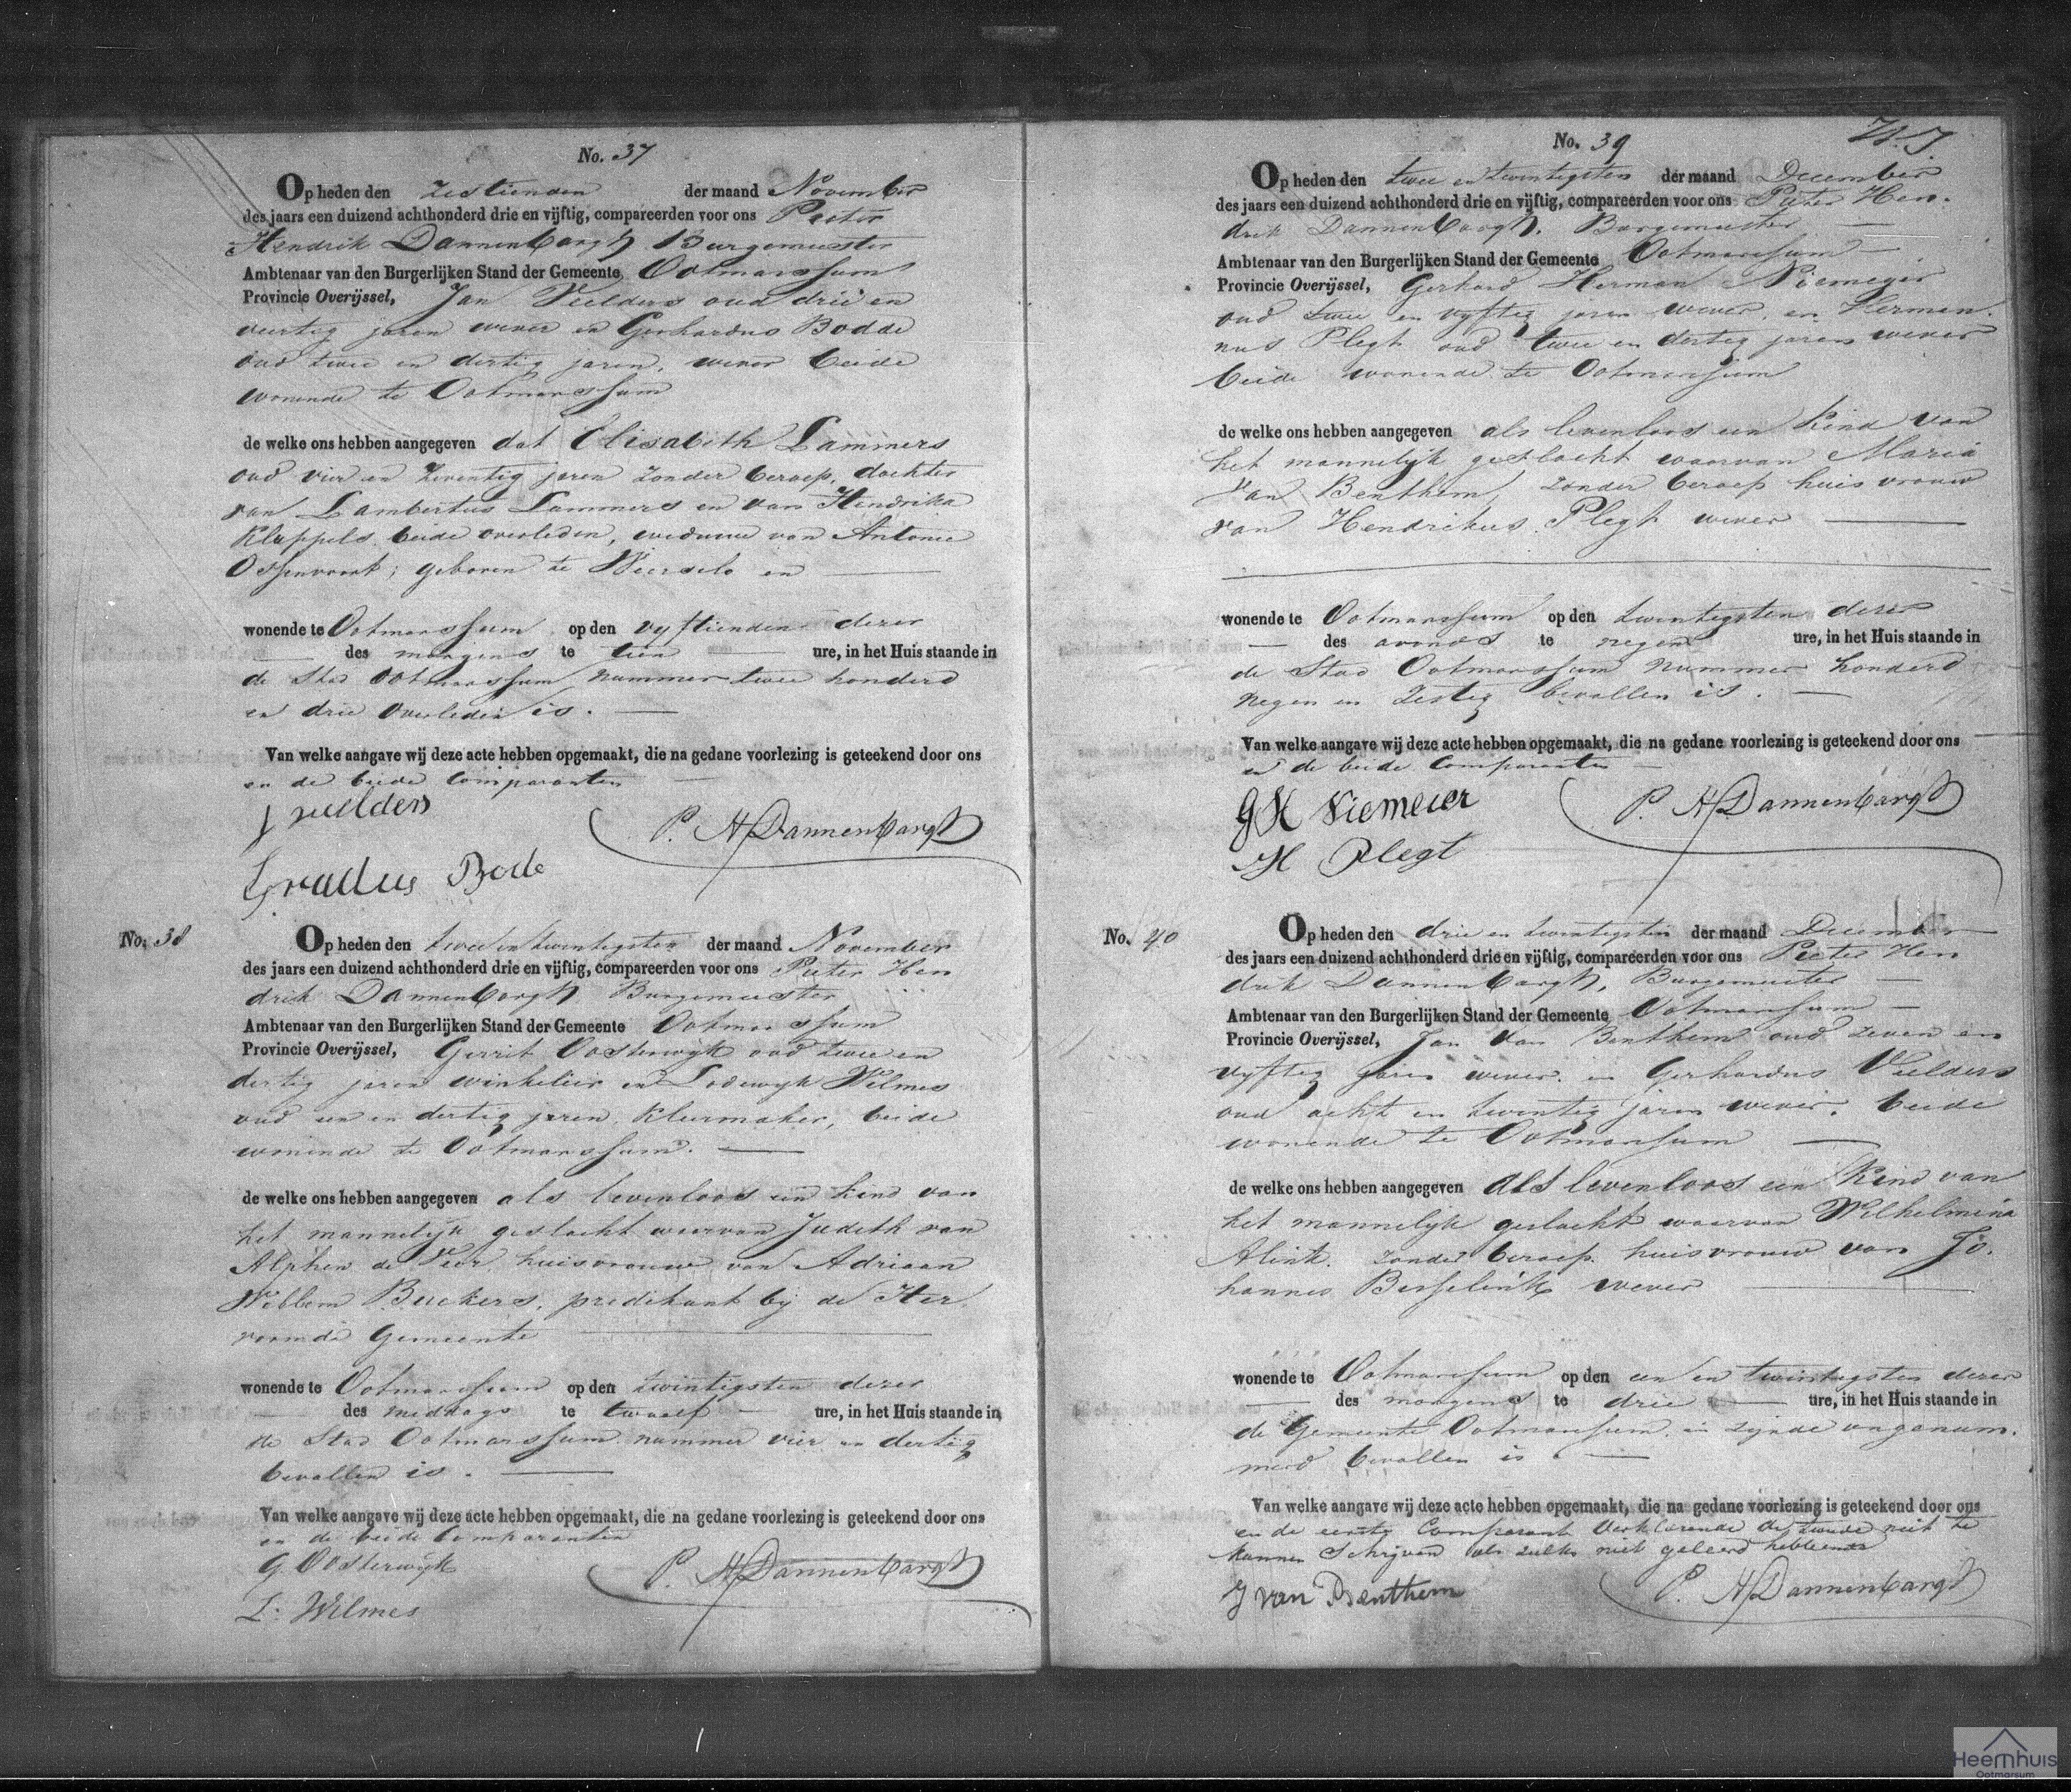 No. 37
Op heden den zestienden der maand November
des jaars een duizend achthonderd drie en vijftig, compareerden voor ons Pieter
Hendrik Dannenbargh Burgemeester
Ambtenaar van den Burgerlijken Stand der Gemeente Ootmarssum
Provincie Overijssel, Jan Velders oud drie en
veertig jaren wever en Gerhardus Bodde
oud twee en dertig jaren, wever beide
wonende te Ootmarssum
de welke ons hebben aangegeven dat Elisabeth Lammers
oud vier en zeventig jaren zonder beroep, dochter
van Lambertus Lammers en van Hendrika
Kleppels beide overleden, weduwe van Antonie
Ossenvoort; geboren te Weerselo en
wonende te Ootmarssum op den vyftienden dezer
des morgens te tien ure, in het Huis staande in
de Stad Ootmarssum nummer twee honderd
en drie overleden is.
Van welke aangave wij deze acte hebben opgemaakt, die na gedane voorlezing is geteekend door ons
en de beide Comparanten
J velders
P. H Dannenbargh
Gradus Bode
No. 38
Op heden den twee en twintigsten der maand November
des jaars een duizend achthonderd drie en vijftig, compareerden voor ons Pieter Hen
drik Dannenbargh Burgemeester
Ambtenaar van den Burgerlijken Stand der Gemeente Ootmarssum
Provincie Overijssel, Gerrit Oosterwyk oud twee en
dertig jaren winkelier en Lodewyk Wilmes
oud een en dertig jaren, kleermaker, beide
wonende te Ootmarssum.
de welke ons hebben aangegeven als levenloos een kind van
het mannelyk geslacht waarvan Judith van
Alphen de Veer, huisvrouw van Adriaan
Willem Beckers, predikant bij de Her
vormde Gemeente
wonende te Ootmarssum op den twintigsten dezer
des middags te twaalf ure, in het Huis staande in
de Stad Ootmarssum nummer vier en dertig
bevallen is.
Van welke aangave wij deze acte hebben opgemaakt, die na gedane voorlezing is geteekend door ons
en de beide Comparanten
G. Oosterwijk
P. H Dannenbargh
L. Wilmes
No. 39
Op heden den twee en twintigsten der maand December
des jaars een duizend achthonderd drie en vijftig, compareerden voor ons Pieter Hen-
drik Dannenbargh, Burgemeester
Ambtenaar van den Burgerlijken Stand der Gemeente Ootmarssum
Provincie Overijssel, Gerhard Herman Niemeyer
oud twee en vyftig jaren wever, en Herman-
nus Plegt oud twee en dertig jaren wever
beide wonende te Ootmarssum
de welke ons hebben aangegeven als levenloos een kind van
het mannelyk geslacht waarvan Maria
van Benthem, zonder beroep huisvrouw
van Hendrikus Plegt wever
wonende te Ootmarssum op den twintigsten dezer
des avonds te negen ure, in het Huis staande in
de Stad Ootmarssum nummer honderd
negen en zestig bevallen is.
Van welke aangave wij deze acte hebben opgemaakt, die na gedane voorlezing is geteekend door ons
en de beide Comparanten
G H Niemeier
P. H Dannenbargh
H Plegt
No. 40
Op heden den drie en twintigsten der maand December
des jaars een duizend achthonderd drie en vijftig, compareerden voor ons Pieter Hen
drik Dannenbargh, Burgemeester
Ambtenaar van den Burgerlijken Stand der Gemeente Ootmarssum
Provincie Overijssel, Jan van Benthem oud zeven en
vyftig jaren wever en Gerhardus Velders
oud acht en twintig jaren wever, beide
wonende te Ootmarssum
de welke ons hebben aangegeven als levenloos een kind van
het mannelyk geslacht waarvan Wilhelmina
Alink, zonder beroep, huisvrouw van Jo-
hannes Besselink wever
wonende te Ootmarssum op den een en twintigsten dezer
des morgens te drie ure, in het Huis staande in
de Gemeente Ootmarssum, zynde ongenum-
merd bevallen is.
Van welke aangave wij deze acte hebben opgemaakt, die na gedane voorlezing is geteekend door ons
en de eerste Comparant verklarende de tweede niet te
kunnen schrijven als zulks niet geleerd hebbende
J van Benthem
P. H Dannenbargh
Heemhuis
Ootmarsum